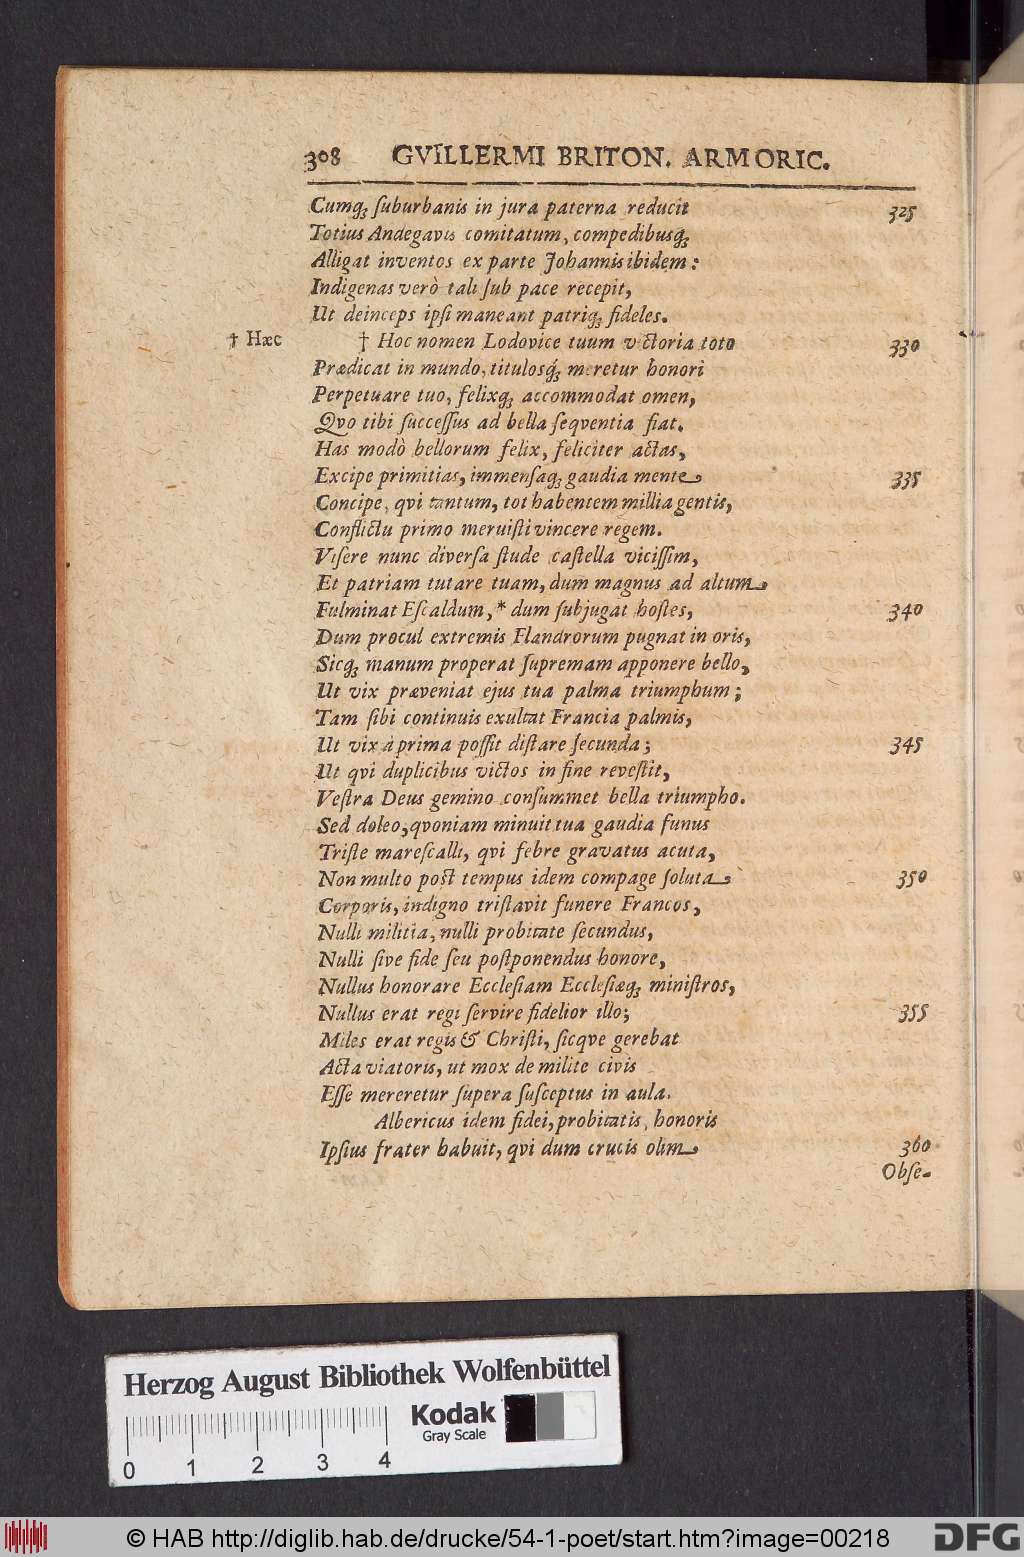 308 GVILLERMI BRITON. ARMORIC.
Cumq; ſuburbanis in jura paterna reducit 325
Totius Andegavis comitatum, compedibusq́;
Alligat inventos ex parte Johannis ibidem:
Indigenas verò tali ſub pace recepit,
Ut deinceps ipſi maneant patriq; fideles.
† Hæc † Hoc nomen Lodovice tuum victoria toto 330
Prædicat in mundo, titulosq́; meretur honori
Perpetuare tuo, felixq; accommodat omen,
Qvo tibi ſucceſſus ad bella ſeqventia fiat.
Has modò bellorum felix, feliciter actas,
Excipe primitias, immenſaq; gaudia mente 335
Concipe, qvi tantum, tot habentem millia gentis,
Conflictu primo meruiſti vincere regem.
Viſere nunc diverſa ſtude caſtella viciſſim,
Et patriam tutare tuam, dum magnus ad altum
Fulminat Eſcaldum, * dum ſubjugat hoſtes, 340
Dum procul extremis Flandrorum pugnat in oris,
Sicq; manum properat ſupremam apponere bello,
Ut vix præveniat ejus tua palma triumphum;
Tam ſibi continuis exultat Francia palmis,
Ut vix à prima poſſit diſtare ſecunda; 345
Ut qvi duplicibus victos in fine reveſtit,
Veſtra Deus gemino conſummet bella triumpho.
Sed doleo, qvoniam minuit tua gaudia funus
Triſte mareſcalli, qvi febre gravatus acuta,
Non multo poſt tempus idem compage ſoluta 350
Corporis, indigno triſtavit funere Francos,
Nulli militia, nulli probitate ſecundus,
Nulli ſive fide ſeu poſtponendus honore,
Nullus honorare Eccleſiam Eccleſiæq; miniſtros,
Nullus erat regi ſervire fidelior illo; 355
Miles erat regis & Chriſti, ſicqve gerebat
Acta viatoris, ut mox de milite civis
Eſſe mereretur ſupera ſuſceptus in aula.
Albericus idem fidei, probitatis, honoris
Ipſius frater habuit, qvi dum crucis olim 360
Obſe-
Herzog August Bibliothek Wolfenbüttel
Kodak
Gray Scale
0 1 2 3 4
© HAB http://diglib.hab.de/drucke/54-1-poet/start.htm?image=00218
DFG